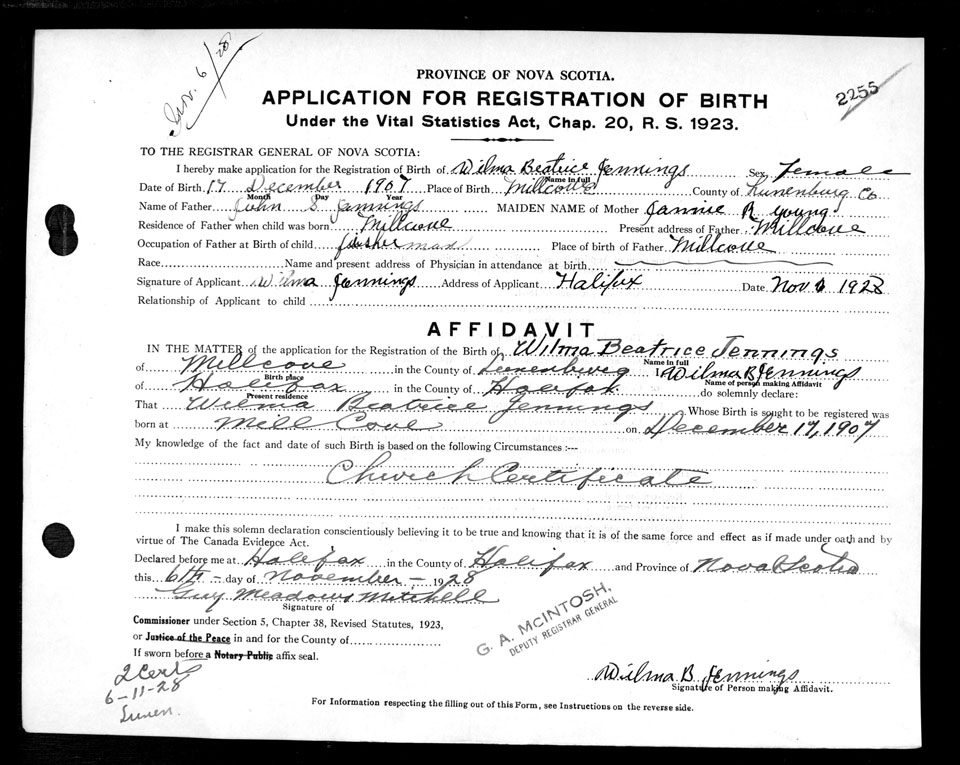 Nov. 6/28
2255
PROVINCE OF NOVA SCOTIA.
APPLICATION FOR REGISTRATION OF BIRTH
Under the Vital Statistics Act, Chap. 20, R. S. 1923.
TO THE REGISTRAR GENERAL OF NOVA SCOTIA:
I hereby make application for the Registration of Birth of Wilma Beatrice Jennings Sex, Female
Name in full
Date of Birth 17 December 1907 Place of Birth Millcove County of Lunenburg Co
Month Day Year
Name of Father John S Jennings MAIDEN NAME of Mother Jannie R Young
Residence of Father when child was born Millcove Present address of Father Millcove
Occupation of Father at Birth of child fisherman Place of birth of Father Millcove
Race Name and present address of Physician in attendance at birth
Signature of Applicant Wilma Jennings Address of Applicant Halifax Date Nov 6 1928
Relationship of Applicant to child
AFFIDAVIT
IN THE MATTER of the application for the Registration of the Birth of Wilma Beatrice Jennings
Name in full
of Millcove in the County of Lunenburg I Wilma B Jennings
Birth place Name of person making Affidavit
of Halifax in the County of Halifax do solemnly declare:
Present residence
That Wilma Beatrice Jennings Whose Birth is sought to be registered was
born at Mill Cove on December 17, 1907
My knowledge of the fact and date of such Birth is based on the following Circumstances :--
Church Certificate
I make this solemn declaration conscientiously believing it to be true and knowing that it is of the same force and effect as if made under oath and by
virtue of The Canada Evidence Act.
Declared before me at Halifax in the County of Halifax and Province of Nova Scotia
this 6th - day of November - 1928
Guy Meadows Mitchell
Signature of
Commissioner under Section 5, Chapter 38, Revised Statutes, 1923,
or Justice of the Peace in and for the County of
If sworn before a Notary Public affix seal.
G. A. MCINTOSH,
DEPUTY REGISTRAR GENERAL
2 Certs
6-11-28
Lunen.
Wilma B Jennings
Signature of Person making Affidavit.
For Information respecting the filling out of this Form, see Instructions on the reverse side.